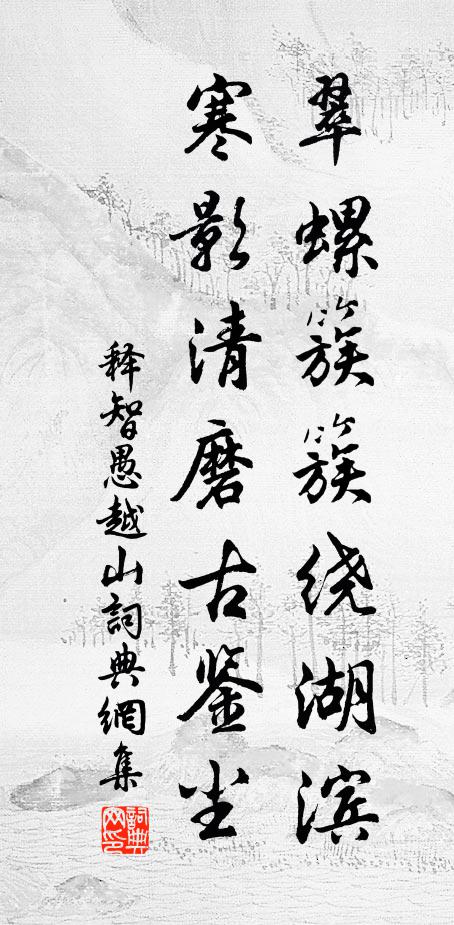 翠螺簇簇绕湖滨
寒影清磨古鉴尘
释智愚越山詞典網集
詞典网印